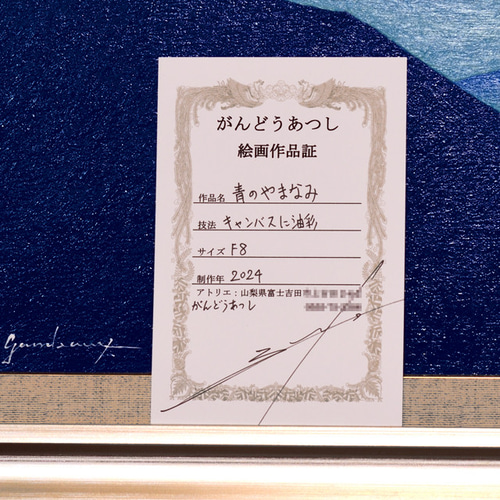 がんどうあつし
絵画作品証
作品名 青のやまなみ
技法 キャンバスに油彩
サイズ F8
制作年 2024
アトリエ：山梨県富士吉田市
がんどうあつし